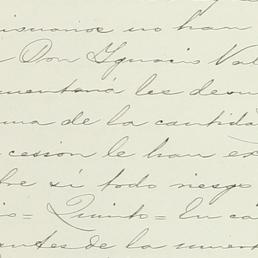 cisuarios no han
Don Ygnacio Val
mentaria les deso
ma de la cantida
cesion le han ex
bre si todo riesgo
is = Quinto = En ca
antes de la muert